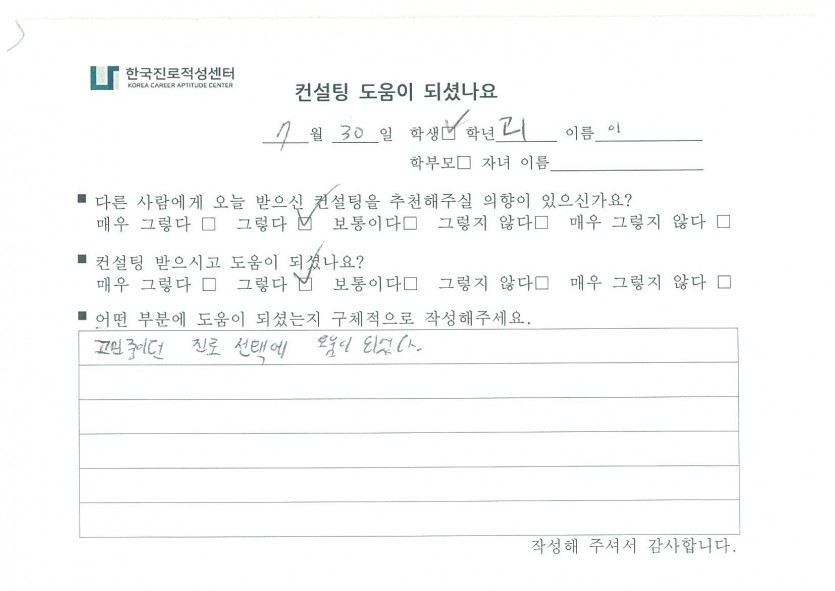 한국진로적성센터
KOREA CAREER APTITUDE CENTER
컨설팅 도움이 되셨나요
7 월 30 일 학생☑ 학년 고1 이름 이
학부모□ 자녀 이름
■ 다른 사람에게 오늘 받으신 컨설팅을 추천해주실 의향이 있으신가요?
매우 그렇다 □ 그렇다 ☑ 보통이다□ 그렇지 않다□ 매우 그렇지 않다 □
■ 컨설팅 받으시고 도움이 되셨나요?
매우 그렇다 □ 그렇다 ☑ 보통이다□ 그렇지 않다□ 매우 그렇지 않다 □
■ 어떤 부분에 도움이 되셨는지 구체적으로 작성해주세요.
고민중이던 진로 선택에 도움이 되었다.
작성해 주셔서 감사합니다.